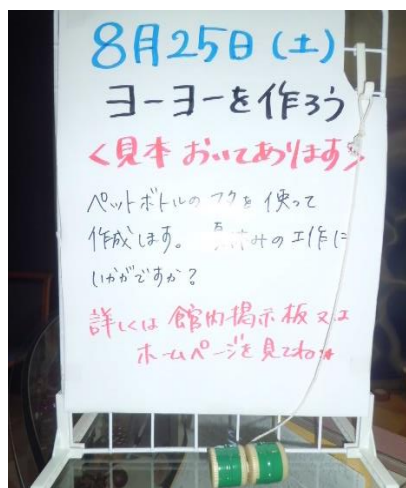 8月25日(土)
ヨーヨーを作ろう
<見本 おいてあります>
ペットボトルのフタを使って
作成します。 夏休みの工作に
いかがですか?
詳しくは 館内掲示板 又は
ホームページを見てね★